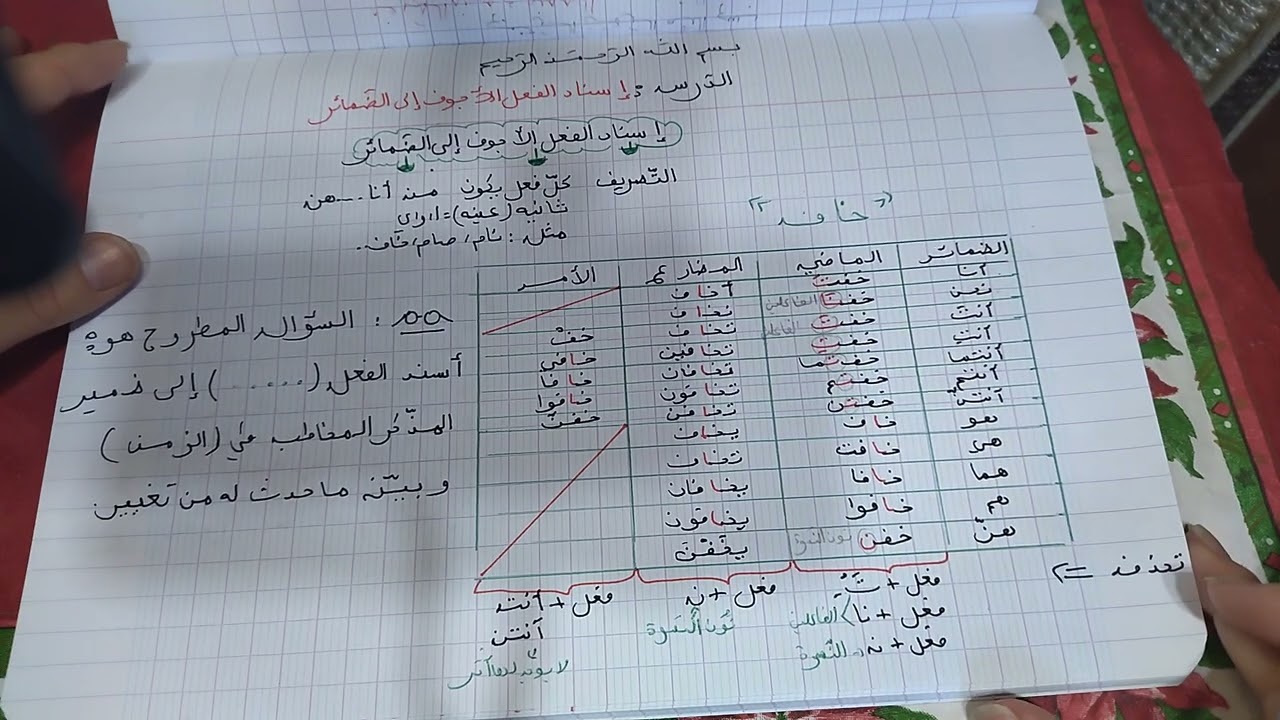 بسم الله الرحمن الرحيم
الدرس : إسناد الفعل الأجوف إلى الضمائر
إسناد الفعل الأجوف إلى الضمائر
التصريف كلّ فعل يكون من أنا...هن
ثانيه (عينه) = ا، و، ي
مثل : نام، صام، خاف..
« خاف »
الضمائر الماضي المضارع الأمر
أنا خفت أخاف
نحن خفنا الفاعلين نخاف
أنتَ خفت الفاعل تخاف خفْ
أنتِ خفتِ تخافين خافي
أنتما خفتما تخافان خافا
أنتم خفتم تخافون خافوا
أنتنّ خفتن تخفن خفن
هو خاف يخاف
هي خافت تخاف
هما خافا يخافان
هم خافوا يخافون
هنّ خفن نون النسوة يخَفْنَ
تحذف =>
فعل + تُ فعل + ن فعل + أنت
فعل + نا الفاعلين نون النسوة أنتن
فعل + ن النسوة
السّؤال المطروح هو :
أسند الفعل (.....) إلى ضمير
المذكّر المخاطب في (الزمن)
و بيّن ما حدث له من تغيير